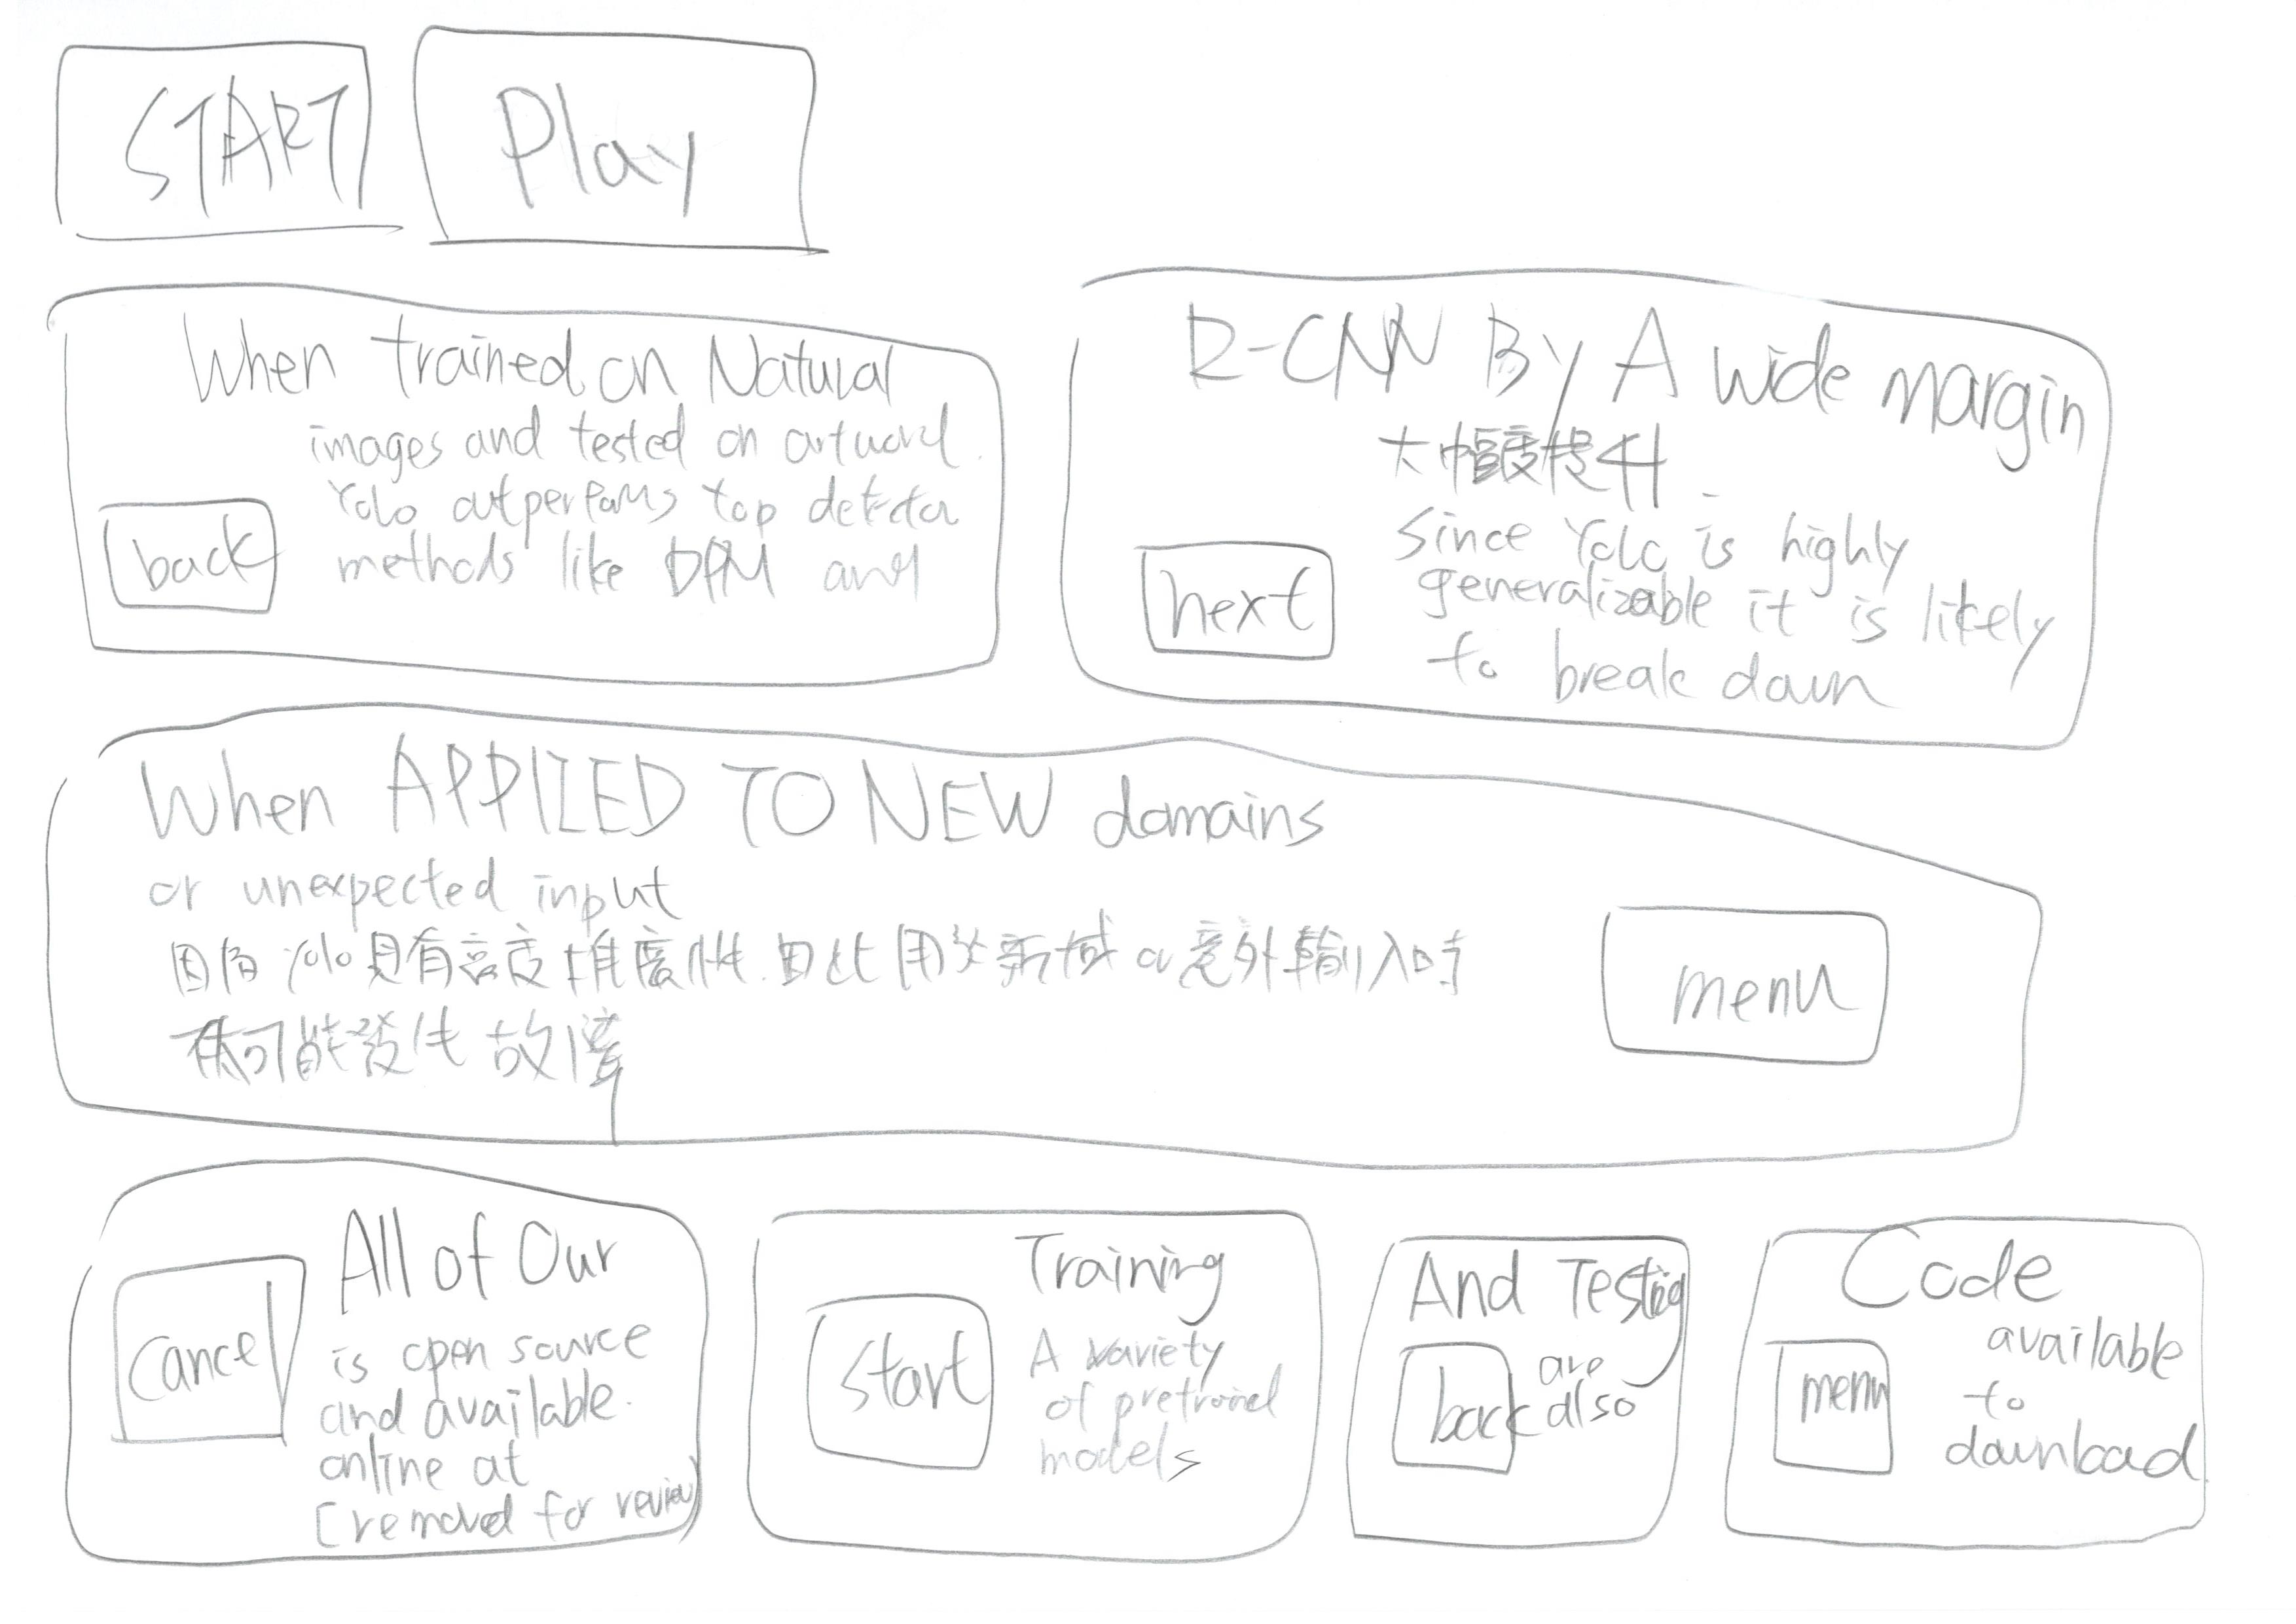 START
Play
When trained on Natural
images and tested on artword
Yolo outperfoms top detector
methods like DPM and
back
R-CNN By A wide margin
大幅度提升
since Yolo is highly
generalizable it is likely
to break down
next
When APPLIED TO NEW domains
or unexpected input
因為 Yolo 具有高度推廣性. 因此用於新域 or 意外輸入時
有可能發生故障
menu
All of Our
is open source
and available.
online at
[removed for review)
cancel
Training
A variety
of pretrained
models
start
And Testing
are
also
back
Code
available
to
download
menu